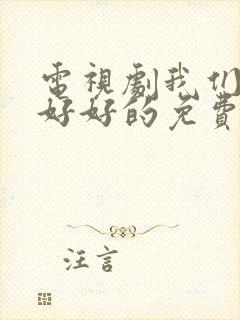 電視劇我们
好好的免費
汪言